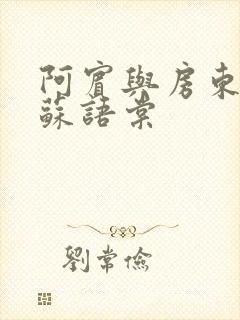 阿賓與房東
蘇語棠
劉常儉